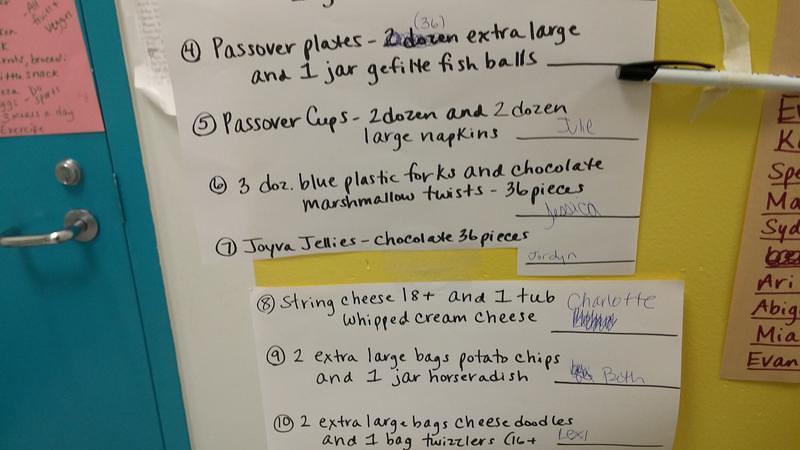 (36)
④ Passover plates - 2 dozen extra large
and 1 jar gefilte fish balls
⑤ Passover Cups - 2 dozen and 2 dozen
large napkins Julie
⑥ 3 doz. blue plastic forks and chocolate
marshmallow twists - 36 pieces
Jessica
⑦ Joyva Jellies - Chocolate 36 pieces
Jordyn
⑧ String cheese 18+ and 1 tub Charlotte
whipped cream cheese
⑨ 2 extra large bags potato chips
and 1 jar horseradish Beth
⑩ 2 extra large bags cheese doodles
and 1 bag twizzlers (16+ Lexi
snack
3 meals a day
Exercise
Spe
Ma
Syd
Ari
Abig
Mia
Evan